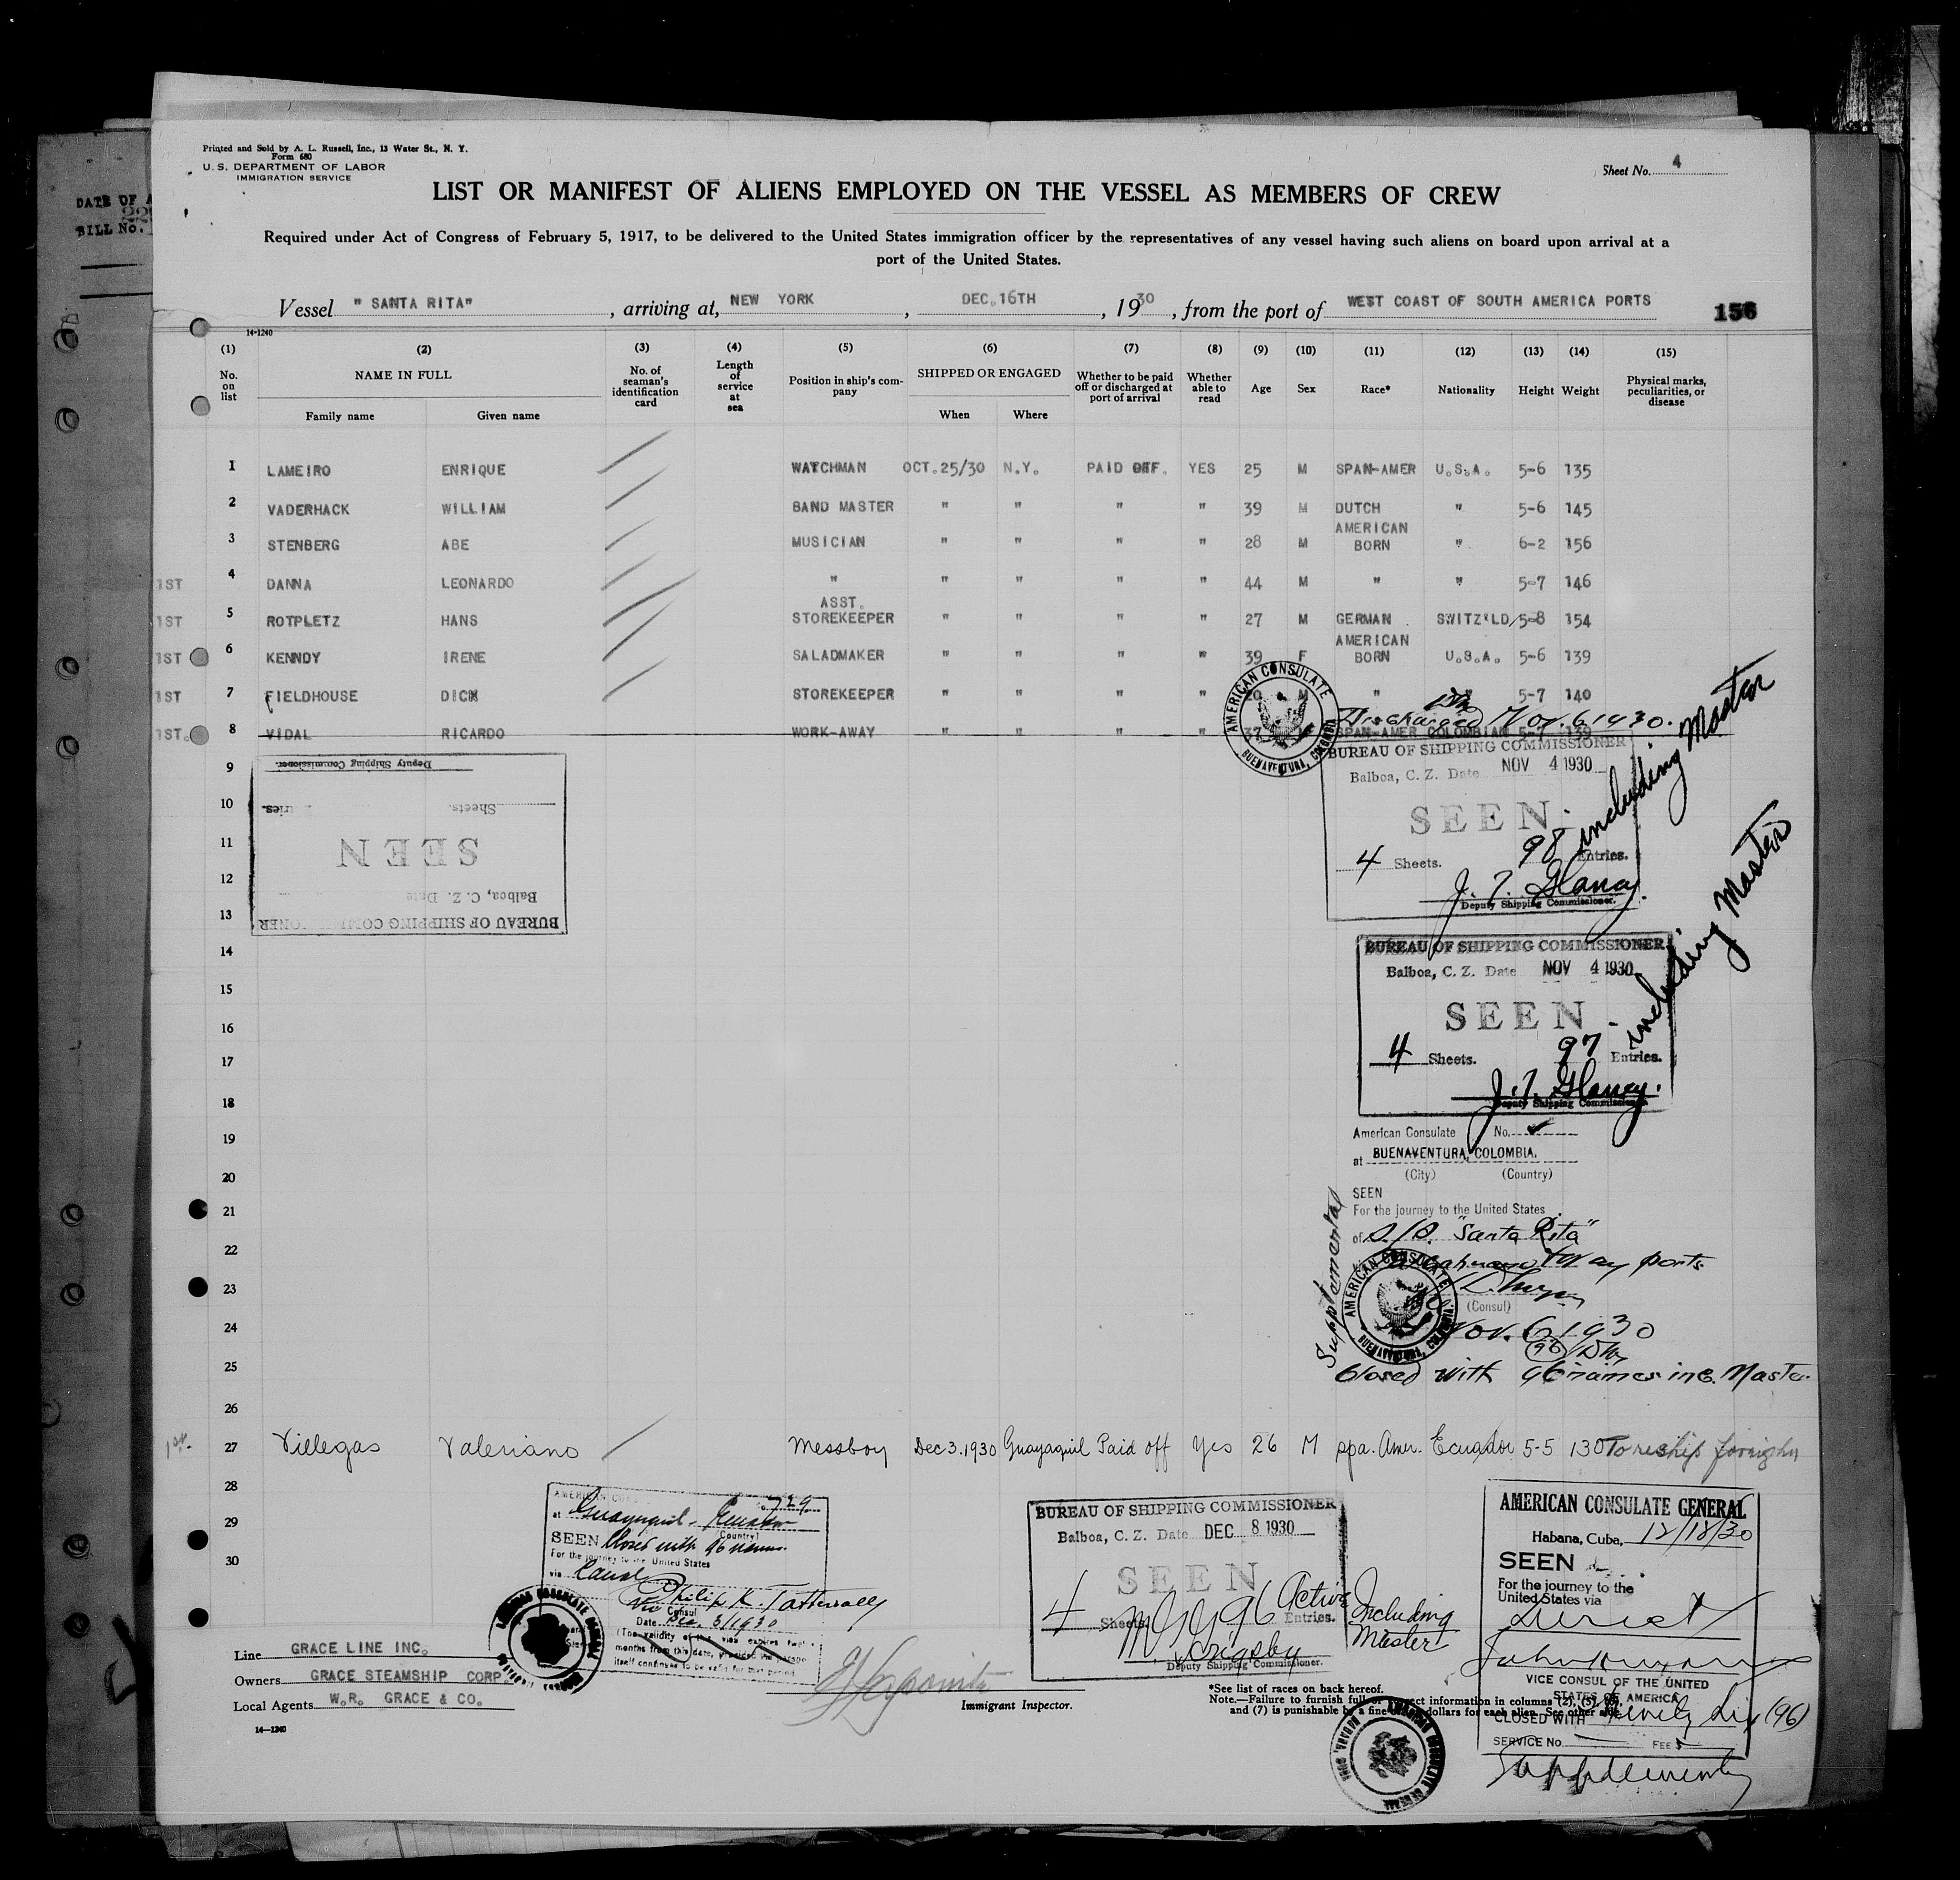 DATE OF A
BILL No.
Printed and Sold by A. L. Russell, Inc., 13 Water St., N. Y.
Form 680
U. S. DEPARTMENT OF LABOR
IMMIGRATION SERVICE
Sheet No. 4
LIST OR MANIFEST OF ALIENS EMPLOYED ON THE VESSEL AS MEMBERS OF CREW
Required under Act of Congress of February 5, 1917, to be delivered to the United States immigration officer by the representatives of any vessel having such aliens on board upon arrival at a
port of the United States.
Vessel " SANTA RITA" , arriving at, NEW YORK , DEC.16TH , 1930 , from the port of WEST COAST OF SOUTH AMERICA PORTS 156
14-1240
(1) (2) (3) (4) (5) (6) (7) (8) (9) (10) (11) (12) (13) (14) (15)
No. on list NAME IN FULL No. of seaman's identification card Length of service at sea Position in ship's company SHIPPED OR ENGAGED Whether to be paid off or discharged at port of arrival Whether able to read Age Sex Race* Nationality Height Weight Physical marks, peculiarities, or disease
Family name Given name When Where
1 LAMEIRO ENRIQUE WATCHMAN OCT.25/30 N.Y. PAID OFF. YES 25 M SPAN-AMER U.S.A. 5-6 135
2 VADERHACK WILLIAM BAND MASTER " " " " 39 M DUTCH " 5-6 145
3 STENBERG ABE MUSICIAN " " " " 28 M AMERICAN BORN " 6-2 156
1ST 4 DANNA LEONARDO " " " " " 44 M " " 5-7 146
1ST 5 ROTPLETZ HANS ASST. STOREKEEPER " " " " 27 M GERMAN SWITZ'LD 5-8 154
1ST 6 KENNDY IRENE SALADMAKER " " " " 39 F AMERICAN BORN U.S.A. 5-6 139
1ST 7 FIELDHOUSE DICK STOREKEEPER " " " " 20 M " " 5-7 140
Discharged Nov. 6 1930.
1ST. 8 VIDAL RICARDO WORK-AWAY " " " " 37 SPAN-AMER COLOMBIAN 5-7 139
AMERICAN CONSULATE
BUENAVENTURA, COLOMBIA
9
10
11
12
13
14
15
16
17
18
19
20
21
22
23
24
25
26
BUREAU OF SHIPPING COMMISSIONER
Balboa, C. Z. Date
SEEN
Sheets. Entries.
Deputy Shipping Commissioner.
BUREAU OF SHIPPING COMMISSIONER
Balboa, C. Z. Date NOV 4 1930
SEEN
4 Sheets. 98 Entries. including Master
J. T. Glancy.
Deputy Shipping Commissioner.
BUREAU OF SHIPPING COMMISSIONER
Balboa, C. Z. Date NOV 4 1930
SEEN
4 Sheets. 97 Entries. including Master
J. T. Glancy.
Deputy Shipping Commissioner
American Consulate No.
at BUENAVENTURA, COLOMBIA.
(City) (Country)
SEEN
For the journey to the United States
of S/S. "Santa Rita"
ports
(Consul)
Nov. 6 1930
(96)
Closed with 96 names inc. Master
Supplemental
AMERICAN CONSULATE
BUENAVENTURA, COLOMBIA
1st. 27 Villegas Valeriano Messboy Dec 3.1930 Guayaquil Paid off Yes 26 M Spa. Amer. Ecuador 5-5 130 To reship foreign
28
29
30
729
at Guayaquil - Ecuador
Country)
SEEN Closed with 96 names.
For the journey to the United States
via Canal
Philip K. Tattersall
Vice Consul
Date Dec. 3/1930
(The validity of this visa expires twelve
months from this date, provided the
itself continues to be valid for that period
BUREAU OF SHIPPING COMMISSIONER
Balboa, C. Z. Date DEC 8 1930
SEEN
4 Sheets 96 Active Entries. Including Master
Grigsby
Deputy Shipping Commissioner.
AMERICAN CONSULATE GENERAL
Habana, Cuba, 12/18/30
SEEN
For the journey to the
United States via
Direct
VICE CONSUL OF THE UNITED
STATES OF AMERICA
CLOSED WITH Ninety Six (96)
SERVICE No. FEE $
Supplementy
Line GRACE LINE INC.
Owners GRACE STEAMSHIP CORP.
Local Agents W.R. GRACE & CO.
14-1240
Immigrant Inspector.
*See list of races on back hereof.
Note.—Failure to furnish full or correct information in columns (2), (5), (6),
and (7) is punishable by a fine of dollars for each alien. See other side.